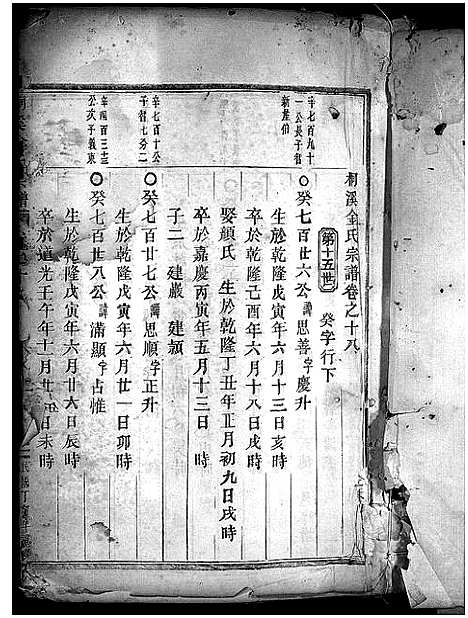 桐溪金氏宗譜卷之十八
第十五世 癸字行下
辛七百九十
一公長子智
新產伯
癸七百廿六公諱思善字慶升
生於乾隆戊寅年六月十三日亥時
卒於乾隆己酉年六月十八日戌時
娶顏氏 生於乾隆丁丑年正月初九日戌時
卒於嘉慶丙寅年五月十三日 時
子二 建巖 建穎
辛七百十公
子智七房二
癸七百廿七公諱思順字正升
生於乾隆戊寅年六月廿一日卯時
辛四百三十
公次子義東
癸七百廿八公諱滿顯字占惟
生於乾隆戊寅年六月廿六日辰時
卒於道光壬午年十一月廿 日未時